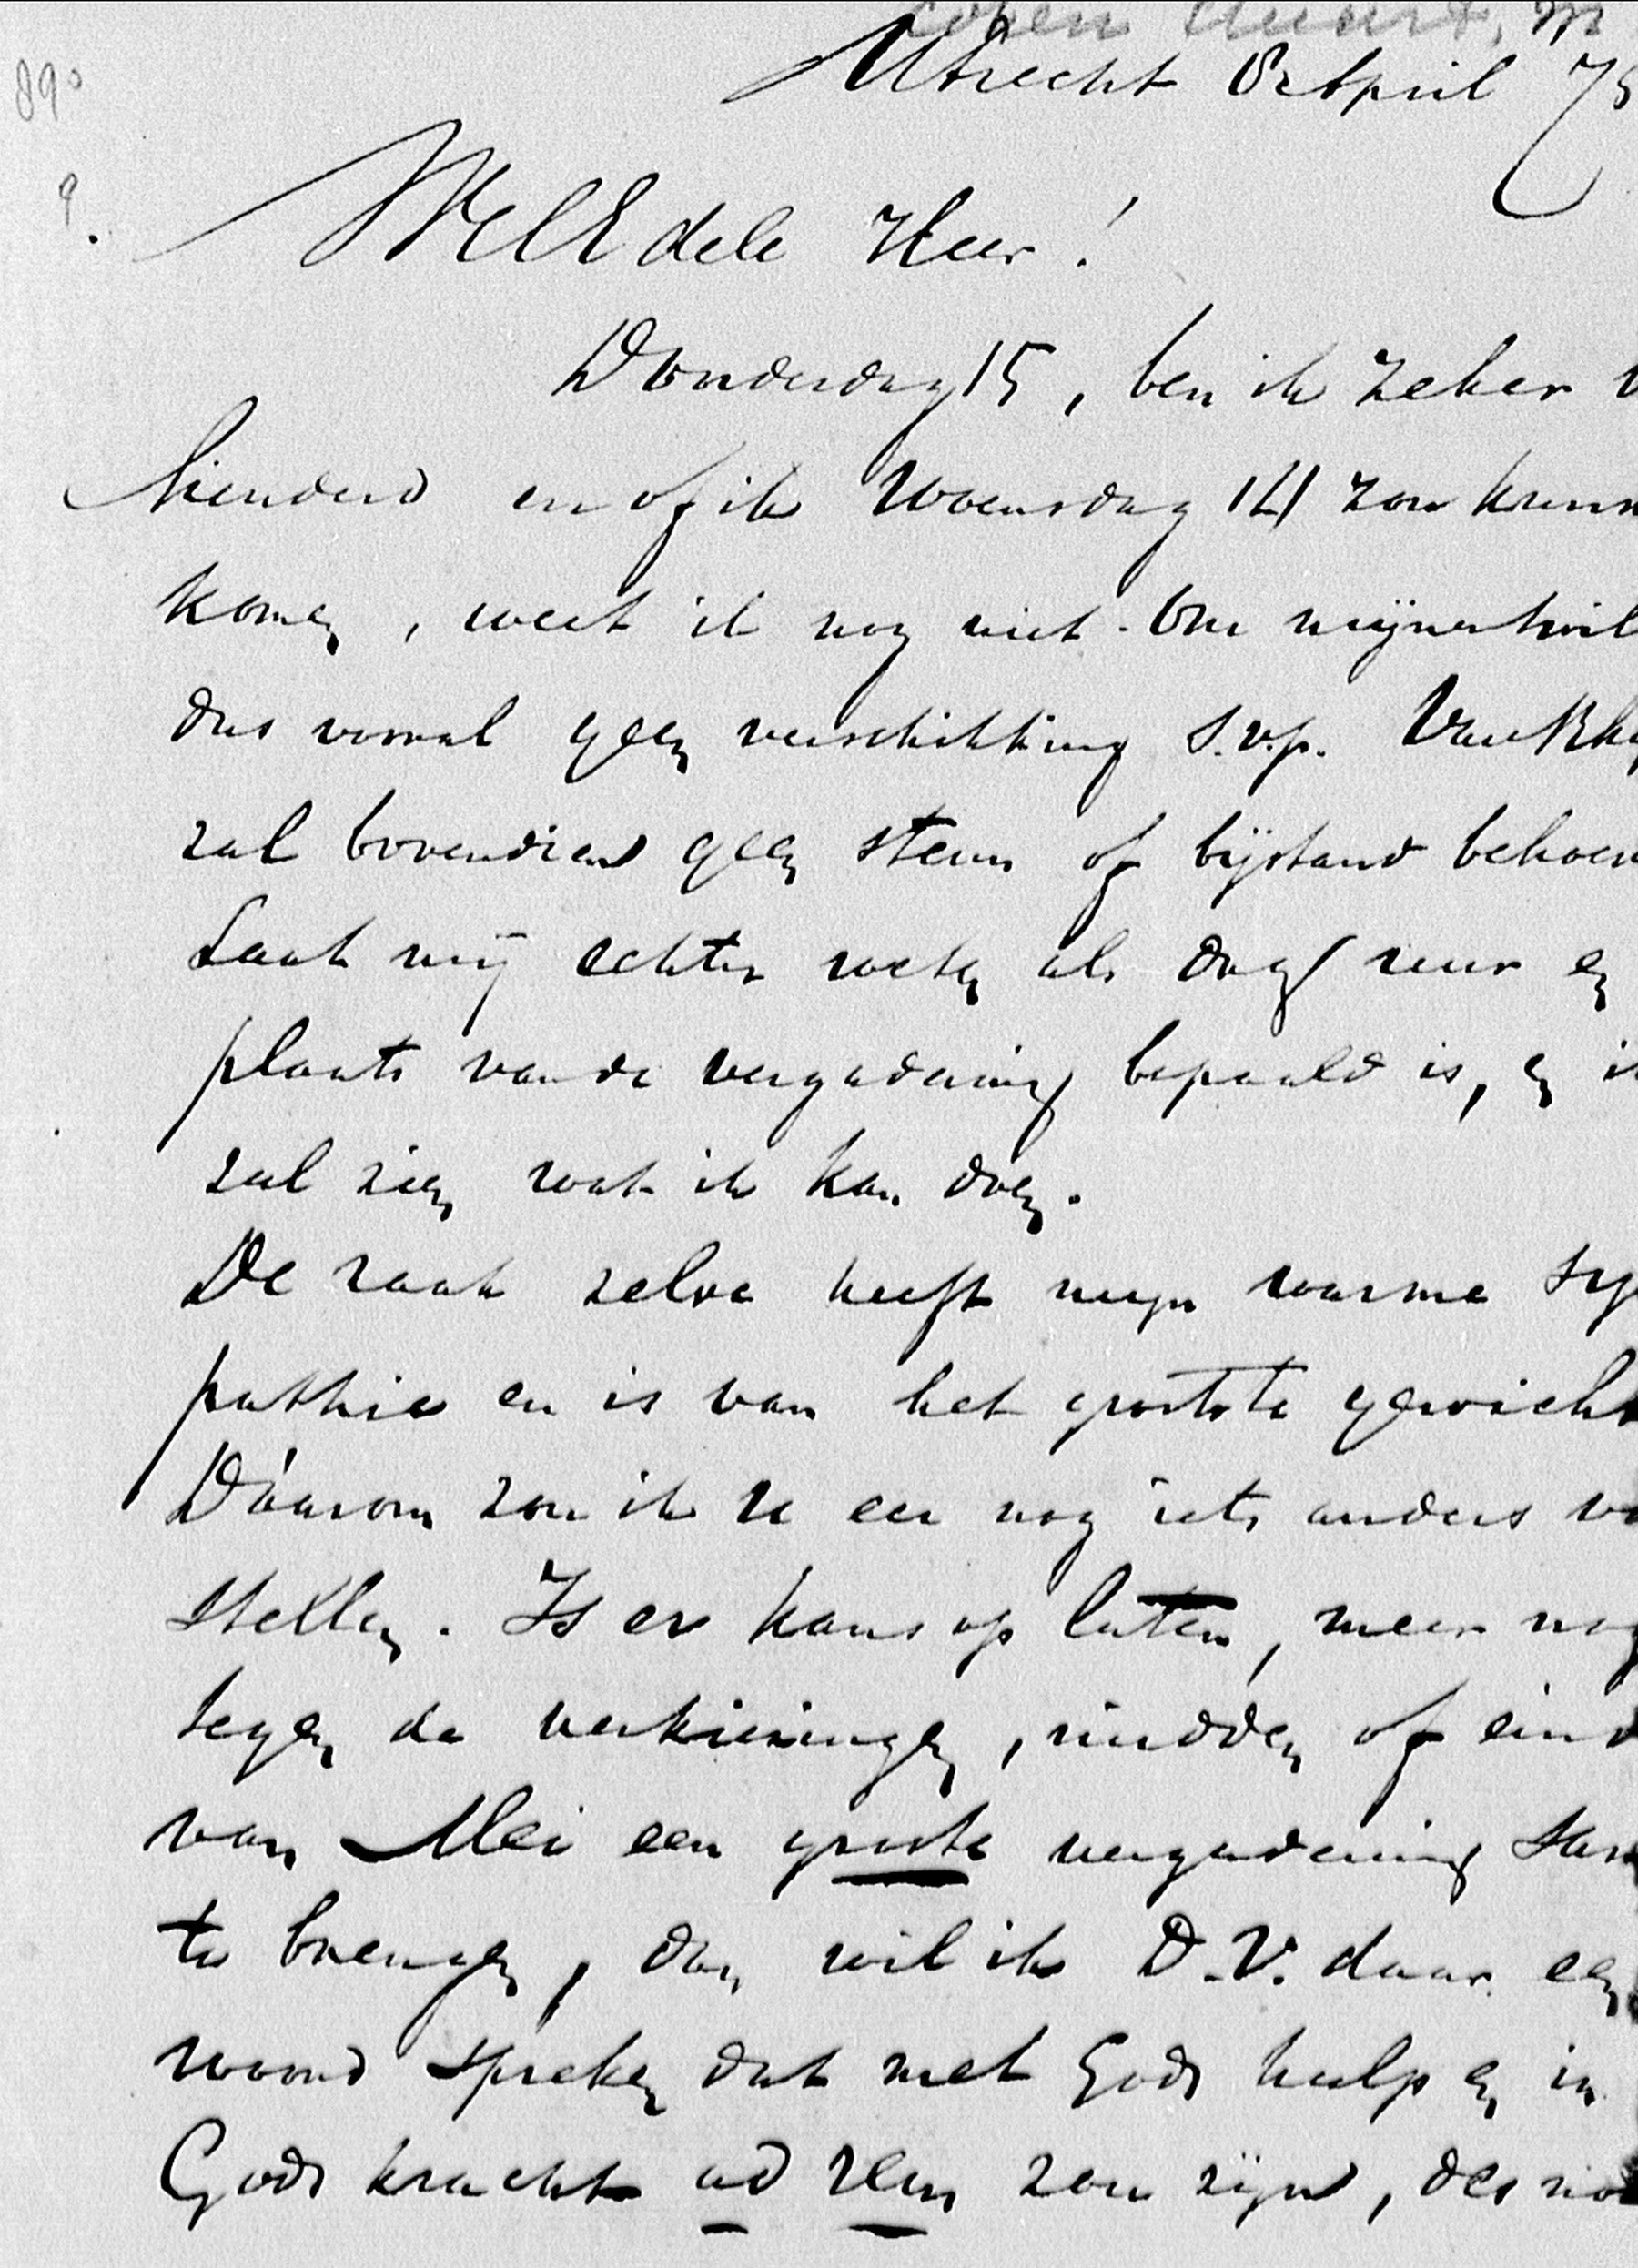 Cohen Stuart, M
890
Utrecht 8 April 75
9.
WelEdele Heer!
Donderdag 15, ben ik zeker
hinderd en of ik Woensdag 14 zou kunn
komen, weet ik nog niet. Om mijnentwil
dus vooral geen verschikking s.v.p. Van Rh
zal bovendien geen steun of bijstand behoev
Laat mij echter weten als dag uur en
plaats van de vergadering bepaald is, en ik
zal zien wat ik kan doen.
De zaak zelve heeft mijn warme sy
pathie en is van het grootste gewicht
Dáarom zou ik u een nog iets anders vo
stellen. Is er kans op later, meer nog
tegen de verkiezingen, midden of eind
van Mei een groote vergadering
te brengen, dan wil ik D.V. daar een
woord spreken dat met Gods hulp en in
Gods kracht ad rem zou zijn, des no